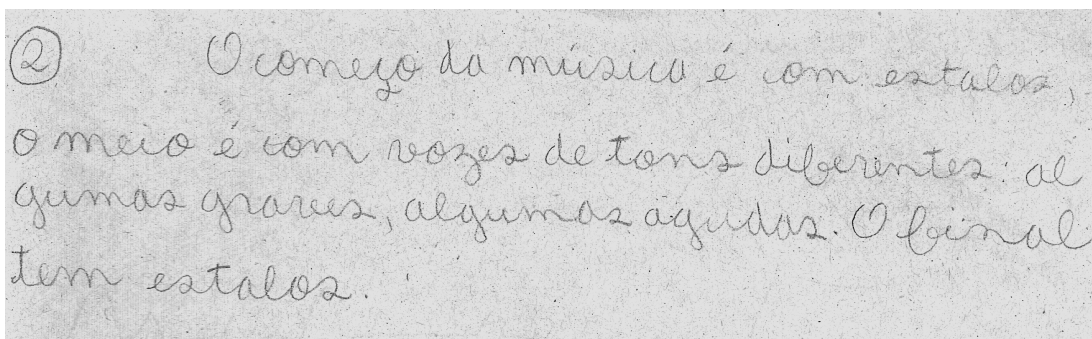 2 O começo da música é com estalos,
o meio é com vozes de tons diferentes: al
gumas graves, algumas agudas. O final
tem estalos.